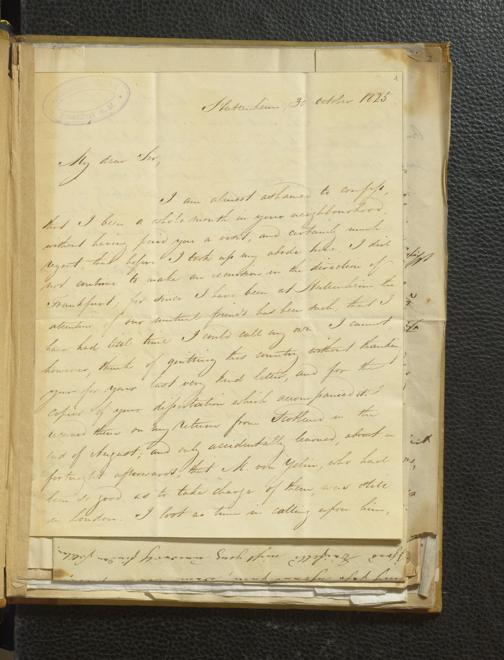 3 October 1825
My dear Sir,
I am almost ashamed to confess,
that I been a whole month in your neighbourhood,
without having paid you a visit, and certainly much
regret, that before I took up my abode here, I did
not contrive to make an excursion in the direction of
Frankfurt, for since I have been at the
attention of our mutual friends has been such, that I
have had little time I could call my own. I cannot
however, think of quitting this country without thanking
you for your last very kind letter, and for the
copies of your dissertation which accompanied it. I
received them on my return from Scotland in the
end of August, and only accidentally learned, about a
fortnight afterwards, that M. von Yelin, who had
been so good as to take charge of them, was still
in London. I lost no time in calling upon him,